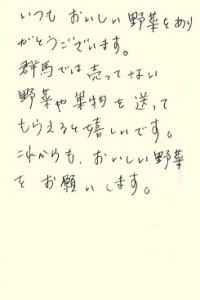 いつも おいしい野菜をあり
がとうございます。
群馬では売ってない
野菜や果物を送って
もらえると嬉しいです。
これからも、おいしい野菜
を お願いします。